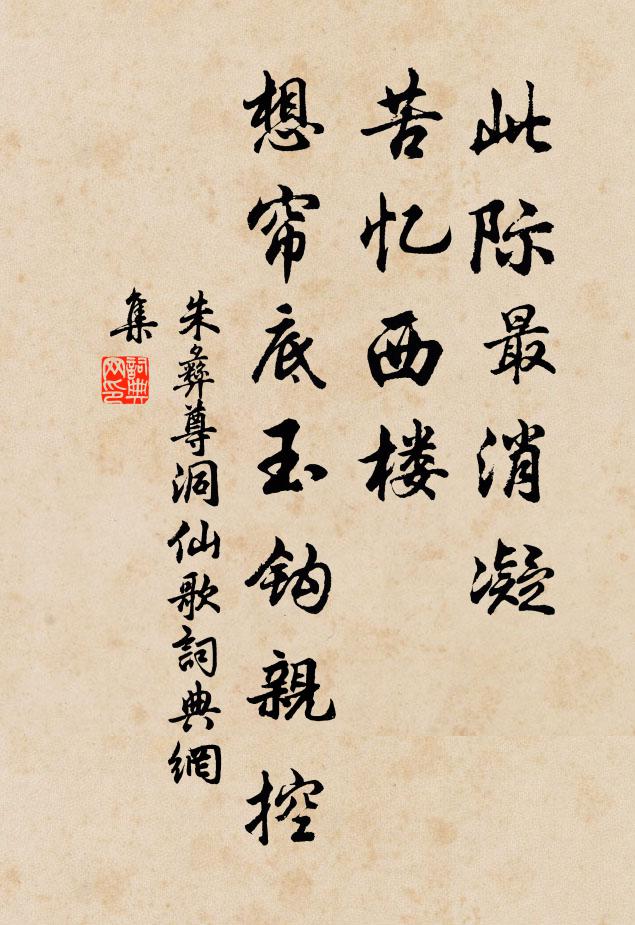 此际最消凝
苦忆西楼
想帘底玉钩親控
朱彝尊洞仙歌詞典網
集
詞典网印